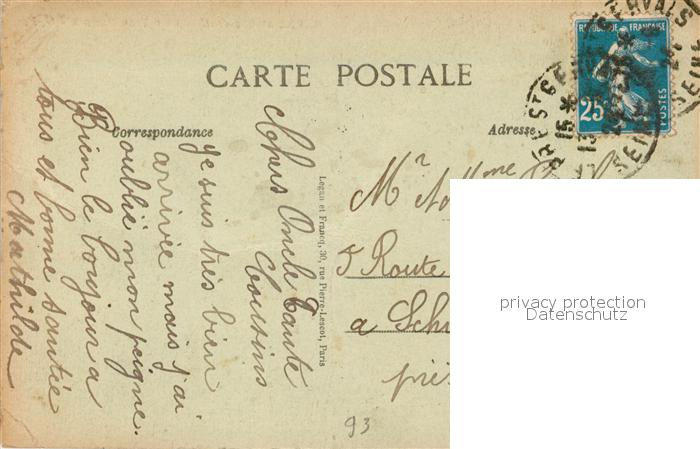 CARTE POSTALE
Correspondance
Adresse
RÉPUBLIQUE FRANÇAISE
25c
POSTES
PRÉ ST GERVAIS
SEINE
Chers Oncle Tante
Cousins
Je suis très bien
arrivée mais j'ai
oublié mon peigne.
Bien le bonjour a
tous et bonne santée
Mathilde
Logan et Francq, 30, rue Pierre-Lescot, Paris
Mr et Mme
5 Route
a Sch
près
93
privacy protection
Datenschutz